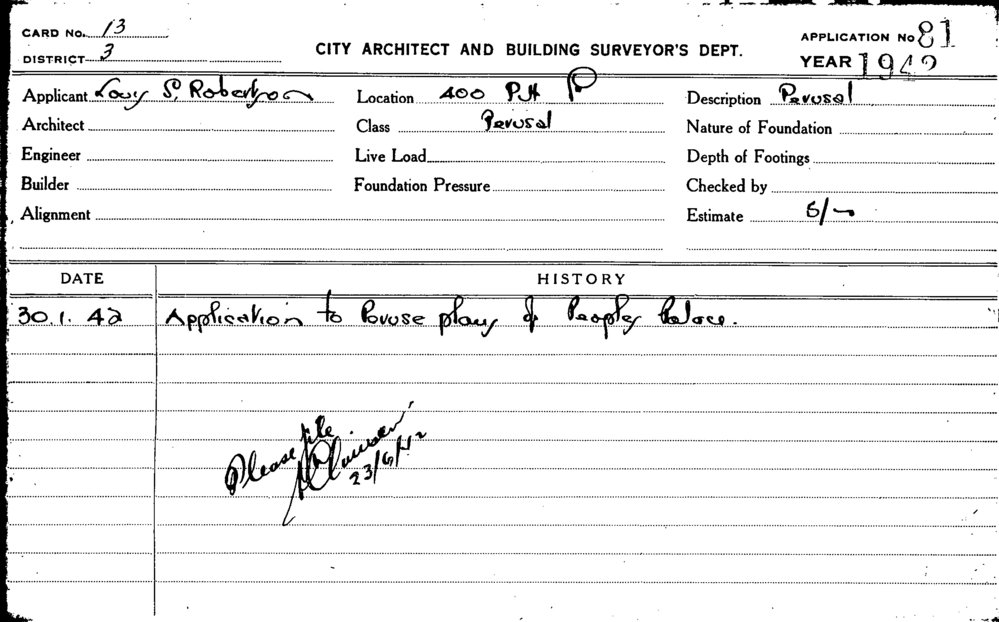 CARD No. 13
DISTRICT 3
CITY ARCHITECT AND BUILDING SURVEYOR'S DEPT.
APPLICATION No 81
YEAR 1942
Applicant Louis S. Robertson Location 400 Pitt Description Perusal
Architect Class Perusal Nature of Foundation
Engineer Live Load Depth of Footings
Builder Foundation Pressure Checked by
Alignment Estimate 5/-
DATE HISTORY
30.1.42 Application to Peruse plans of Peoples Palace.
Please file
23/6/42